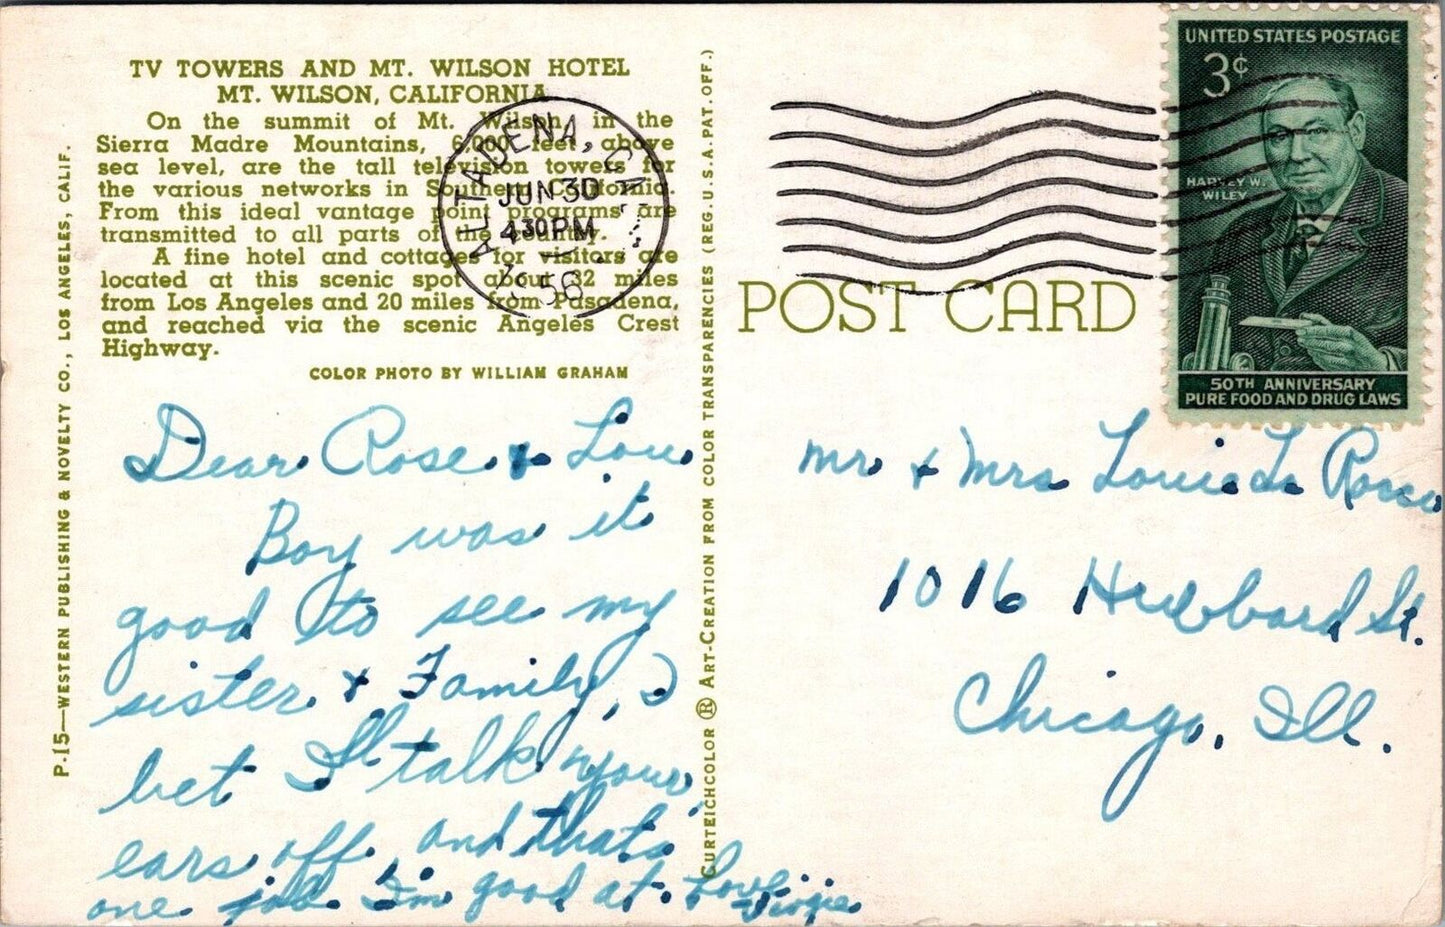 TV TOWERS AND MT. WILSON HOTEL
MT. WILSON, CALIFORNIA
On the summit of Mt. Wilson, in the
Sierra Madre Mountains, 6,000 feet above
sea level, are the tall television towers for
the various networks in Southern California.
From this ideal vantage point programs are
transmitted to all parts of the country.
A fine hotel and cottages for visitors are
located at this scenic spot about 32 miles
from Los Angeles and 20 miles from Pasadena,
and reached via the scenic Angeles Crest
Highway.
COLOR PHOTO BY WILLIAM GRAHAM
P.15—WESTERN PUBLISHING & NOVELTY CO., LOS ANGELES, CALIF.
Dear Rose & Lou
Boy was it
good to see my
sister & Family, I
bet I'll talk your
ears off, and that's
one job I'm good at. Love
Virgie
CURTEICHCOLOR ® ART-CREATION FROM COLOR TRANSPARENCIES (REG. U.S.A. PAT. OFF.)
ALTADENA, CALIF.
JUN 30
4 30 PM
1956
POST CARD
UNITED STATES POSTAGE
3¢
HARVEY W.
WILEY
50TH ANNIVERSARY
PURE FOOD AND DRUG LAWS
Mr & Mrs Louis Lo Rosso
1016 Hubbard St.
Chicago, Ill.